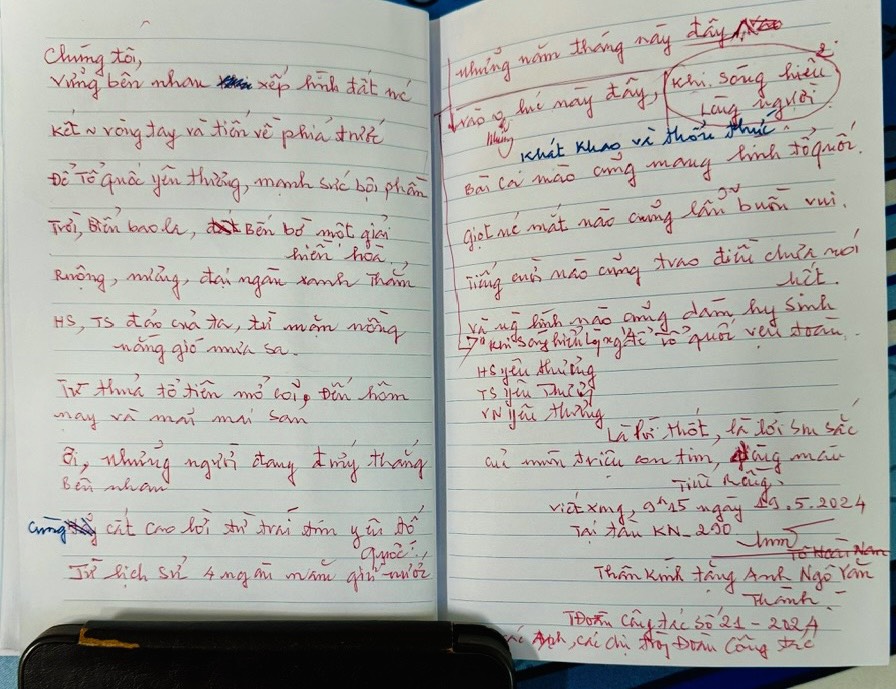 Chúng tôi,
Vững bên nhau xếp hình đất nc
Kết ~ vòng tay và tiến về phía trước
Để Tổ Quốc yên thương, mạnh sức bội phần
Trời, Biển bao la, Bến bờ một giải
hiền hoà.,
Ruộng, mường, đại ngàn xanh thắm
HS, TS đảo của ta, từ mặn nồng
nắng gió mưa sa.
Từ thuở tổ tiên mở cõi, Đến hôm
nay và mãi mãi sau
Ơi, những người đang đứng thẳng
Bên nhau
cùng cất cao lời từ trái tim yêu tổ
quốc!,
Từ lịch sử 4 ngàn năm giữ nước
những năm tháng này đây
vào ~ lúc này đây, Khi sóng hiểu
Lòng người
Những
Khát Khao và thổn thức
Bài ca nào cũng mang hình tổ quốc.
giọt nc mắt nào cũng lẫn buồn vui.
Tiếng cười nào cũng trao điều chưa nói
hết.
và ng lính nào cũng dám hy sinh
Khi sóng hiểu Lg ng để tổ quốc vẹn toàn.
HS yêu thương
TS yêu Thương
VN yêu thương
Là lời thốt, là lời sâu sắc
của muôn triệu con tim, dòng máu
Tiên Rồng.
viết xong, 9h15 ngày 19.5.2024
Tại tàu KN_290
Thân Kính tặng Anh Ngô Văn
Thành!
TĐoàn Công tác số 21 - 2024
các Anh, các chị trg Đoàn Công tác